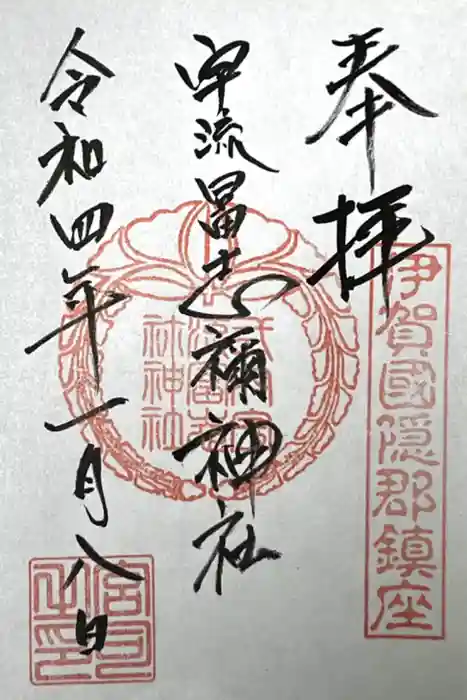 奉拝
伊賀國隠郡鎮座
宇流冨志禰神社
式内宇
流冨志
祢神社
令和四年一月八日
宮司
之印